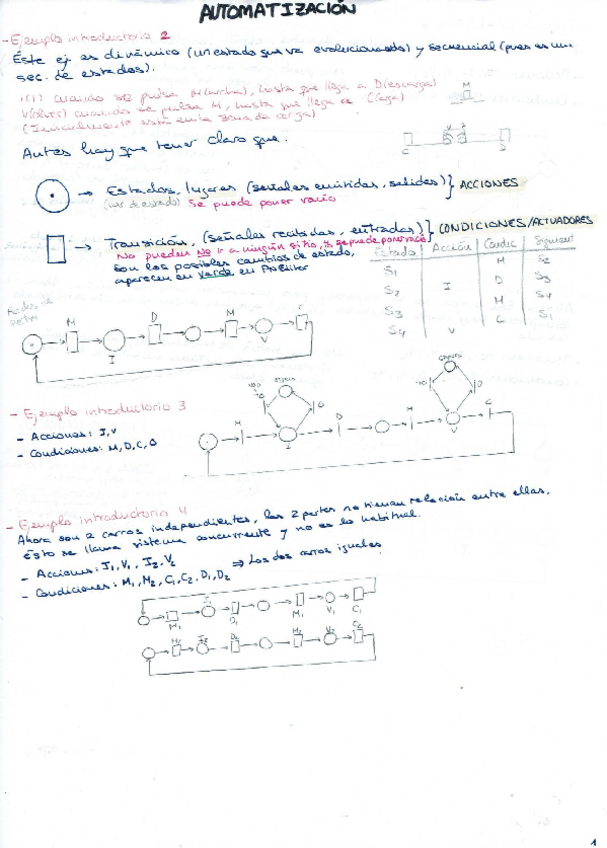 AUTOMATIZACIÓN
- Ejemplo introductorio 2
Éste ej. es dinámico (un estado que va evolucionando) y secuencial (pues es una
sec. de estados).
cuando se pulsa M(archa), hasta que llega a D(escarga)
V(olver) cuando se pulsa M, hasta que llega a C(arga)
(Inicialmente está en la zona de carga)
M
Antes hay que tener claro que.
C
→ Estados, lugares (señales emitidas, salidas)} ACCIONES
(var. de estado) Se puede poner vacío
→ Transición, (señales recibidas, entradas)} CONDICIONES/ACTUADORES
No pueden no ir a ningún sitio, si se puede poner vacío
Son los posibles cambios de estado,
aparecen en verde en
Estado Acción Condic Siguient
S1 M S2
S2 I D S3
S3 M S4
S4 V C S1
Redes de
petri
M D M C
I V
- Ejemplo introductorio 3
- Acciones: I, V
- Condiciones: M, D, C, O
M D M C
I V
- Ejemplo introductorio 4
Ahora son 2 carros independientes, las 2 partes no tienen relación entre ellas.
Ésto se llama sistema concurrente y no es lo habitual.
- Acciones: I1, V1, I2, V2 ⇒ Los dos carros iguales
- Condiciones: M1, M2, C1, C2, D1, D2
I1
M1 D1 M1 V1 C1
M2 I2 D2 M2 V2 C2
1